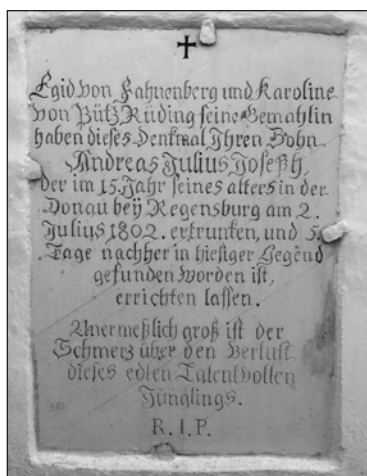 Egid von Fahnenberg und Karoline
von Rütz Rüding seine Gemahlin
haben dieses Denkmal Ihren Sohn
Andreas Julius Joseph,
der im 15. Jahr seines alters in der
Donau beÿ Regensburg am 2.
Julius 1802. ertrunken, und 5.
Tage nachher in hiesiger Gegend
gefunden worden ist,
errichten lassen.
Unermeßlich groß ist der
Schmerz über den Verlust
dieses edlen Talentvollen
Jünglings.
R.I.P.